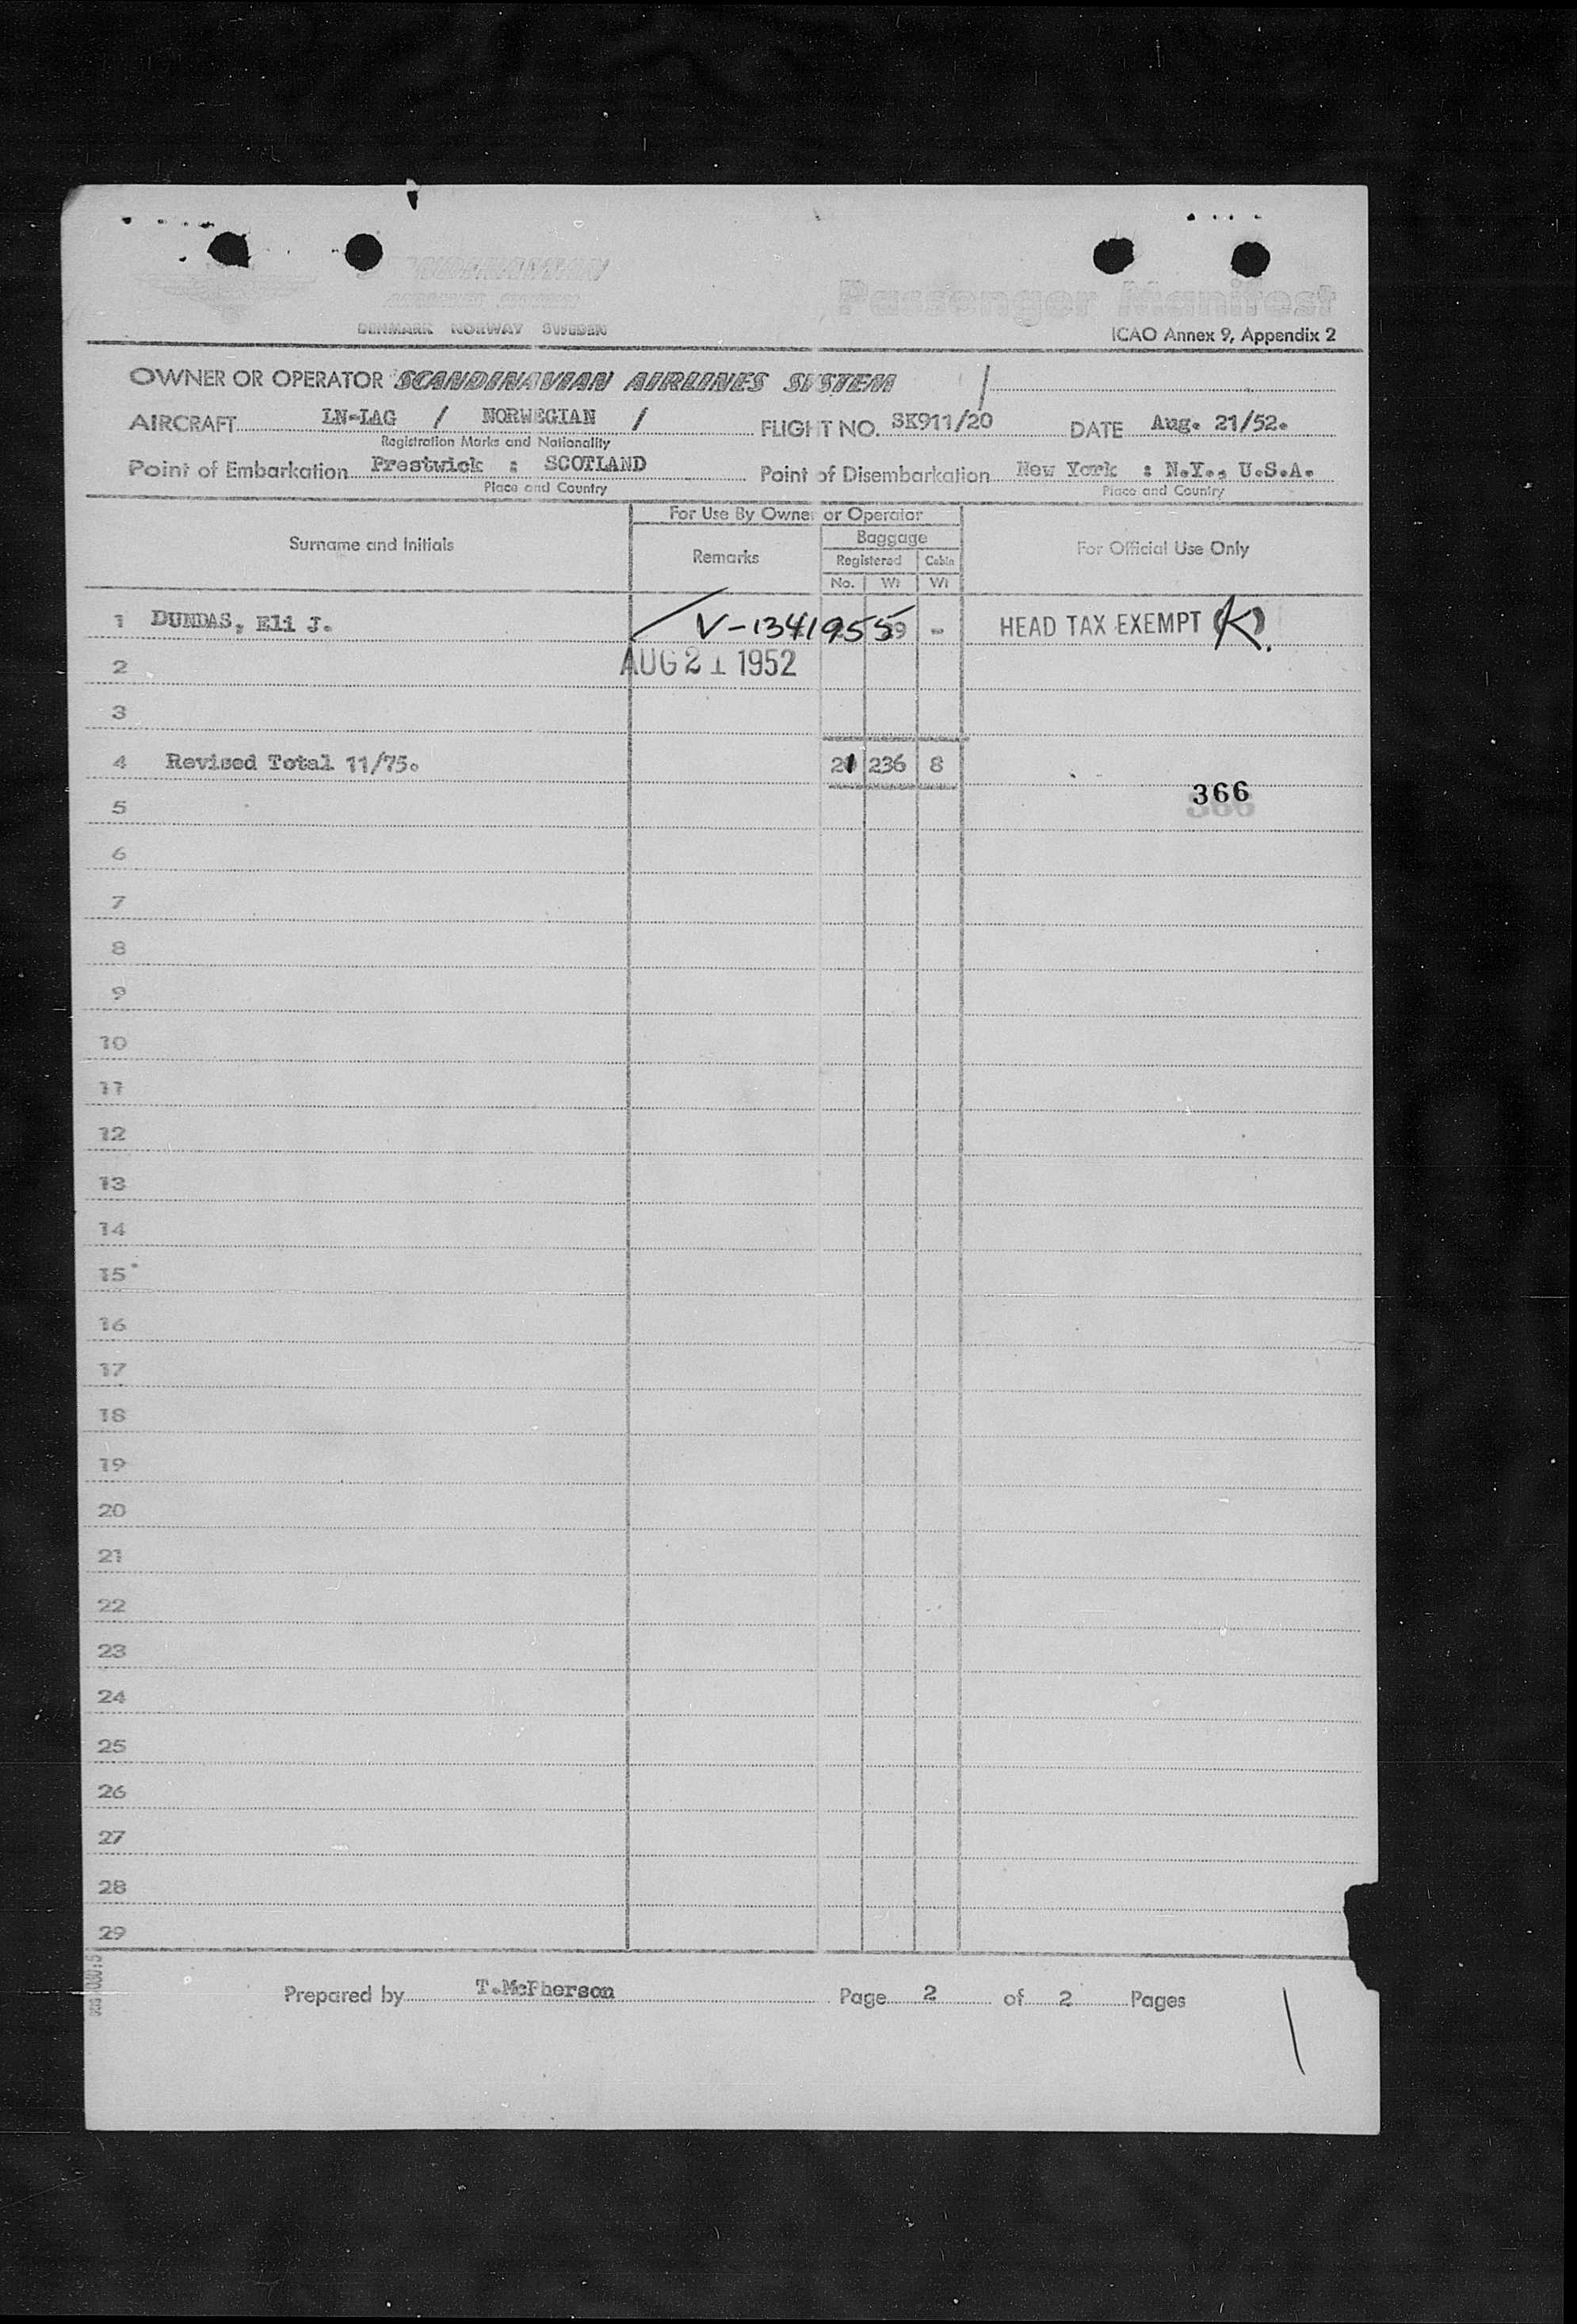 SCANDINAVIAN
AIRLINES SYSTEM
DENMARK NORWAY SWEDEN
Passenger Manifest
ICAO Annex 9, Appendix 2
OWNER OR OPERATOR SCANDINAVIAN AIRLINES SYSTEM
AIRCRAFT LN-LAG / NORWEGIAN / FLIGHT NO. SK911/20 DATE Aug. 21/52.
Registration Marks and Nationality
Point of Embarkation Prestwick : SCOTLAND Point of Disembarkation New York : N.Y., U.S.A.
Place and Country Place and Country
For Use By Owner or Operator
Surname and Initials Remarks Baggage For Official Use Only
Registered Cabin
No. Wt Wt
1 DUNDAS, Eli J. V-1341955 9 - HEAD TAX EXEMPT (K)
2 AUG 21 1952
3
4 Revised Total 11/75. 21 236 8
366
5
6
7
8
9
10
11
12
13
14
15
16
17
18
19
20
21
22
23
24
25
26
27
28
29
Prepared by T.McPherson Page 2 of 2 Pages